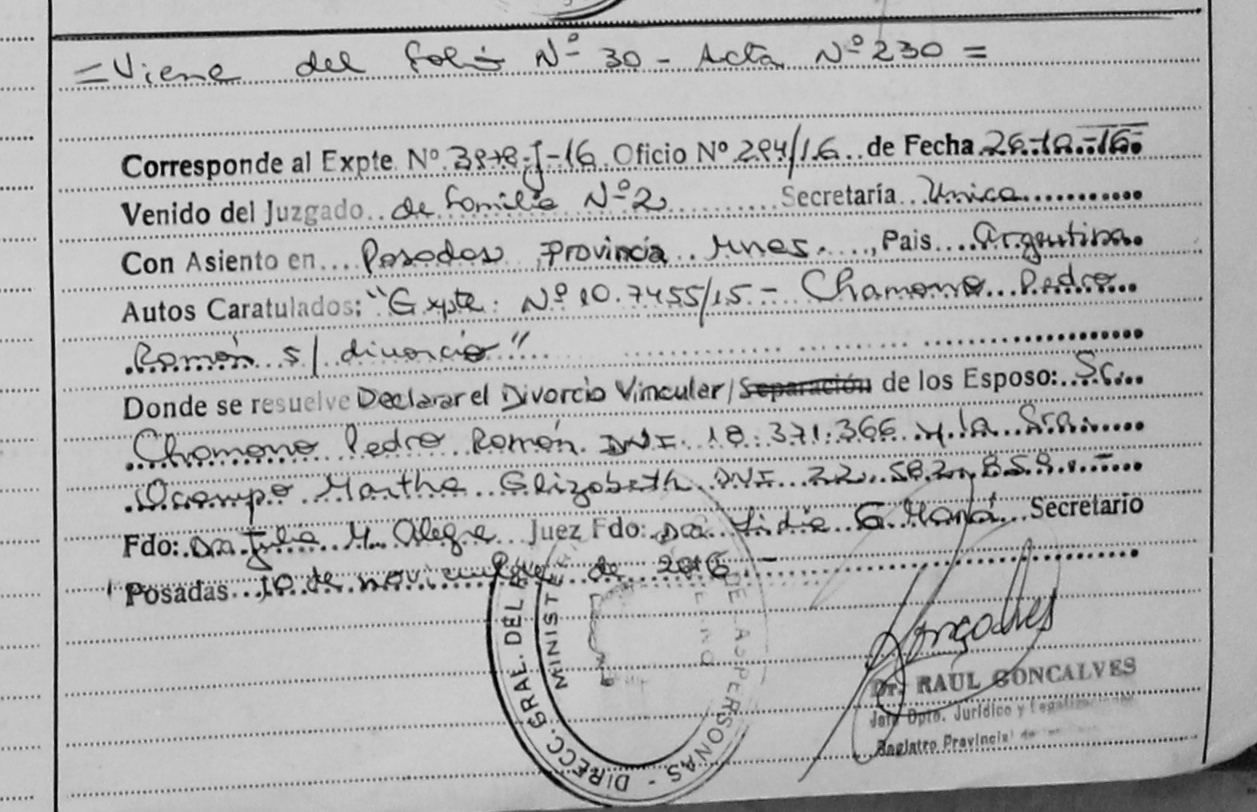 =Viene del folio Nº 30 - Acta Nº 230 =
Corresponde al Expte. Nº 3878-J-16 Oficio Nº 294/16 de Fecha 26-10-16-
Venido del Juzgado de Familia Nº 2 Secretaría Unica
Con Asiento en Posadas Provincia Mnes. , Pais Argentina
Autos Caratulados: "Expte: Nº 10.7455/15 - Chamorro Pedro
Román s/ divorcio"
Donde se resuelve Declarar el Divorcio Vincular/Separación de los Esposo: Sr.
Chamorro Pedro Román DNI 18.371.366 y la Sra.
Ocampo Martha Elizabeth DNI 22.582.859.-
Fdo: Dra Julia M. Alegre Juez Fdo: Dra Lidia G. Secretario
Posadas 10 de noviembre de 2016 -
DIRECC. GRAL. DEL DE LAS PERSONAS -
MINISTERIO
Goncalves
Dr. RAUL GONCALVES
Jefe Dpto. Jurídico y Legalizaciones
Registro Provincial de